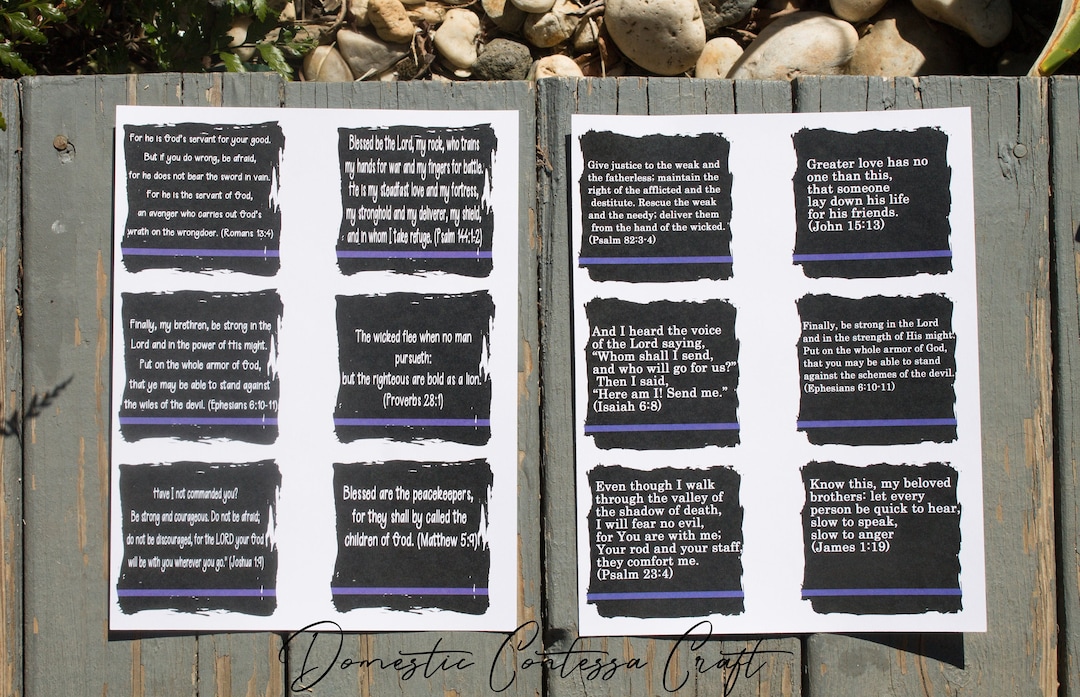 For he is God's servant for your good.
But if you do wrong, be afraid,
for he does not bear the sword in vain.
For he is the servant of God,
an avenger who carries out God's
wrath on the wrongdoer. (Romans 13:4)
Blessed be the Lord, my rock, who trains
my hands for war and my fingers for battle.
He is my steadfast love and my fortress,
my stronghold and my deliverer, my shield,
and in whom I take refuge. (Psalm 144:1-2)
Finally, my brethren, be strong in the
Lord and in the power of His might.
Put on the whole armor of God,
that ye may be able to stand against
the wiles of the devil. (Ephesians 6:10-11)
The wicked flee when no man
pursueth:
but the righteous are bold as a lion.
(Proverbs 28:1)
Have I not commanded you?
Be strong and courageous. Do not be afraid;
do not be discouraged, for the LORD your God
will be with you wherever you go." (Joshua 1:9)
Blessed are the peacekeepers,
for they shall by called the
children of God. (Matthew 5:9)
Give justice to the weak and
the fatherless; maintain the
right of the afflicted and the
destitute. Rescue the weak
and the needy; deliver them
from the hand of the wicked.
(Psalm 82:3-4)
Greater love has no
one than this,
that someone
lay down his life
for his friends.
(John 15:13)
And I heard the voice
of the Lord saying,
“Whom shall I send,
and who will go for us?”
Then I said,
“Here am I! Send me.”
(Isaiah 6:8)
Finally, be strong in the Lord
and in the strength of His might.
Put on the whole armor of God,
that you may be able to stand
against the schemes of the devil.
(Ephesians 6:10-11)
Even though I walk
through the valley of
the shadow of death,
I will fear no evil,
for You are with me;
Your rod and your staff,
they comfort me.
(Psalm 23:4)
Know this, my beloved
brothers: let every
person be quick to hear,
slow to speak,
slow to anger
(James 1:19)
Domestic Contessa Craft